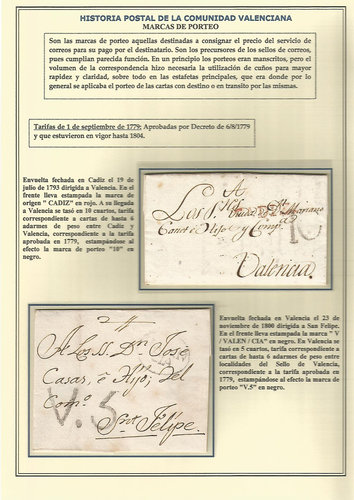 HISTORIA POSTAL DE LA COMUNIDAD VALENCIANA
MARCAS DE PORTEO
Son las marcas de porteo aquellas destinadas a consignar el precio del servicio de
correos para su pago por el destinatario. Son los precursores de los sellos de correos,
pues cumplían parecida función. En un principio los porteos eran manscritos, pero el
volumen de la correspondencia hizo necesaria la utilización de cuños para mayor
rapidez y claridad, sobre todo en las estafetas principales, que era donde por lo
general se aplicaba el porteo de las cartas con destino o en transito por las mismas.
Tarifas de 1 de septiembre de 1779: Aprobadas por Decreto de 6/8/1779
y que estuvieron en vigor hasta 1804.
Envuelta fechada en Cadiz el 19 de
julio de 1793 dirigida a Valencia. En el
frente lleva estampada la marca de
origen " CADIZ" en rojo. A su llegada
a Valencia se tasó en 10 cuartos, tarifa
correspondiente a cartas de hasta 6
adarmes de peso entre Cadiz y
Valencia, correspondiente a la tarifa
aprobada en 1779, estampándose al
efecto la marca de porteo "10" en
negro.
A
Mariano
10
Valencia.
Envuelta fechada en Valencia el 23 de
noviembre de 1800 dirigida a San Felipe.
En el frente lleva estampada la marca " V
/ VALEN / CIA" en negro. En Valencia se
tasó en 5 cuartos, tarifa correspondiente a
cartas de hasta 6 adarmes de peso entre
localidades del Sello de Valencia,
correspondiente a la tarifa aprobada en
1779, estampándose al efecto la marca de
porteo "V.5" en negro.
A los SS. Dn. José
Casas, é Hijo, del
Com.º
V.5
Snt. Felipe.